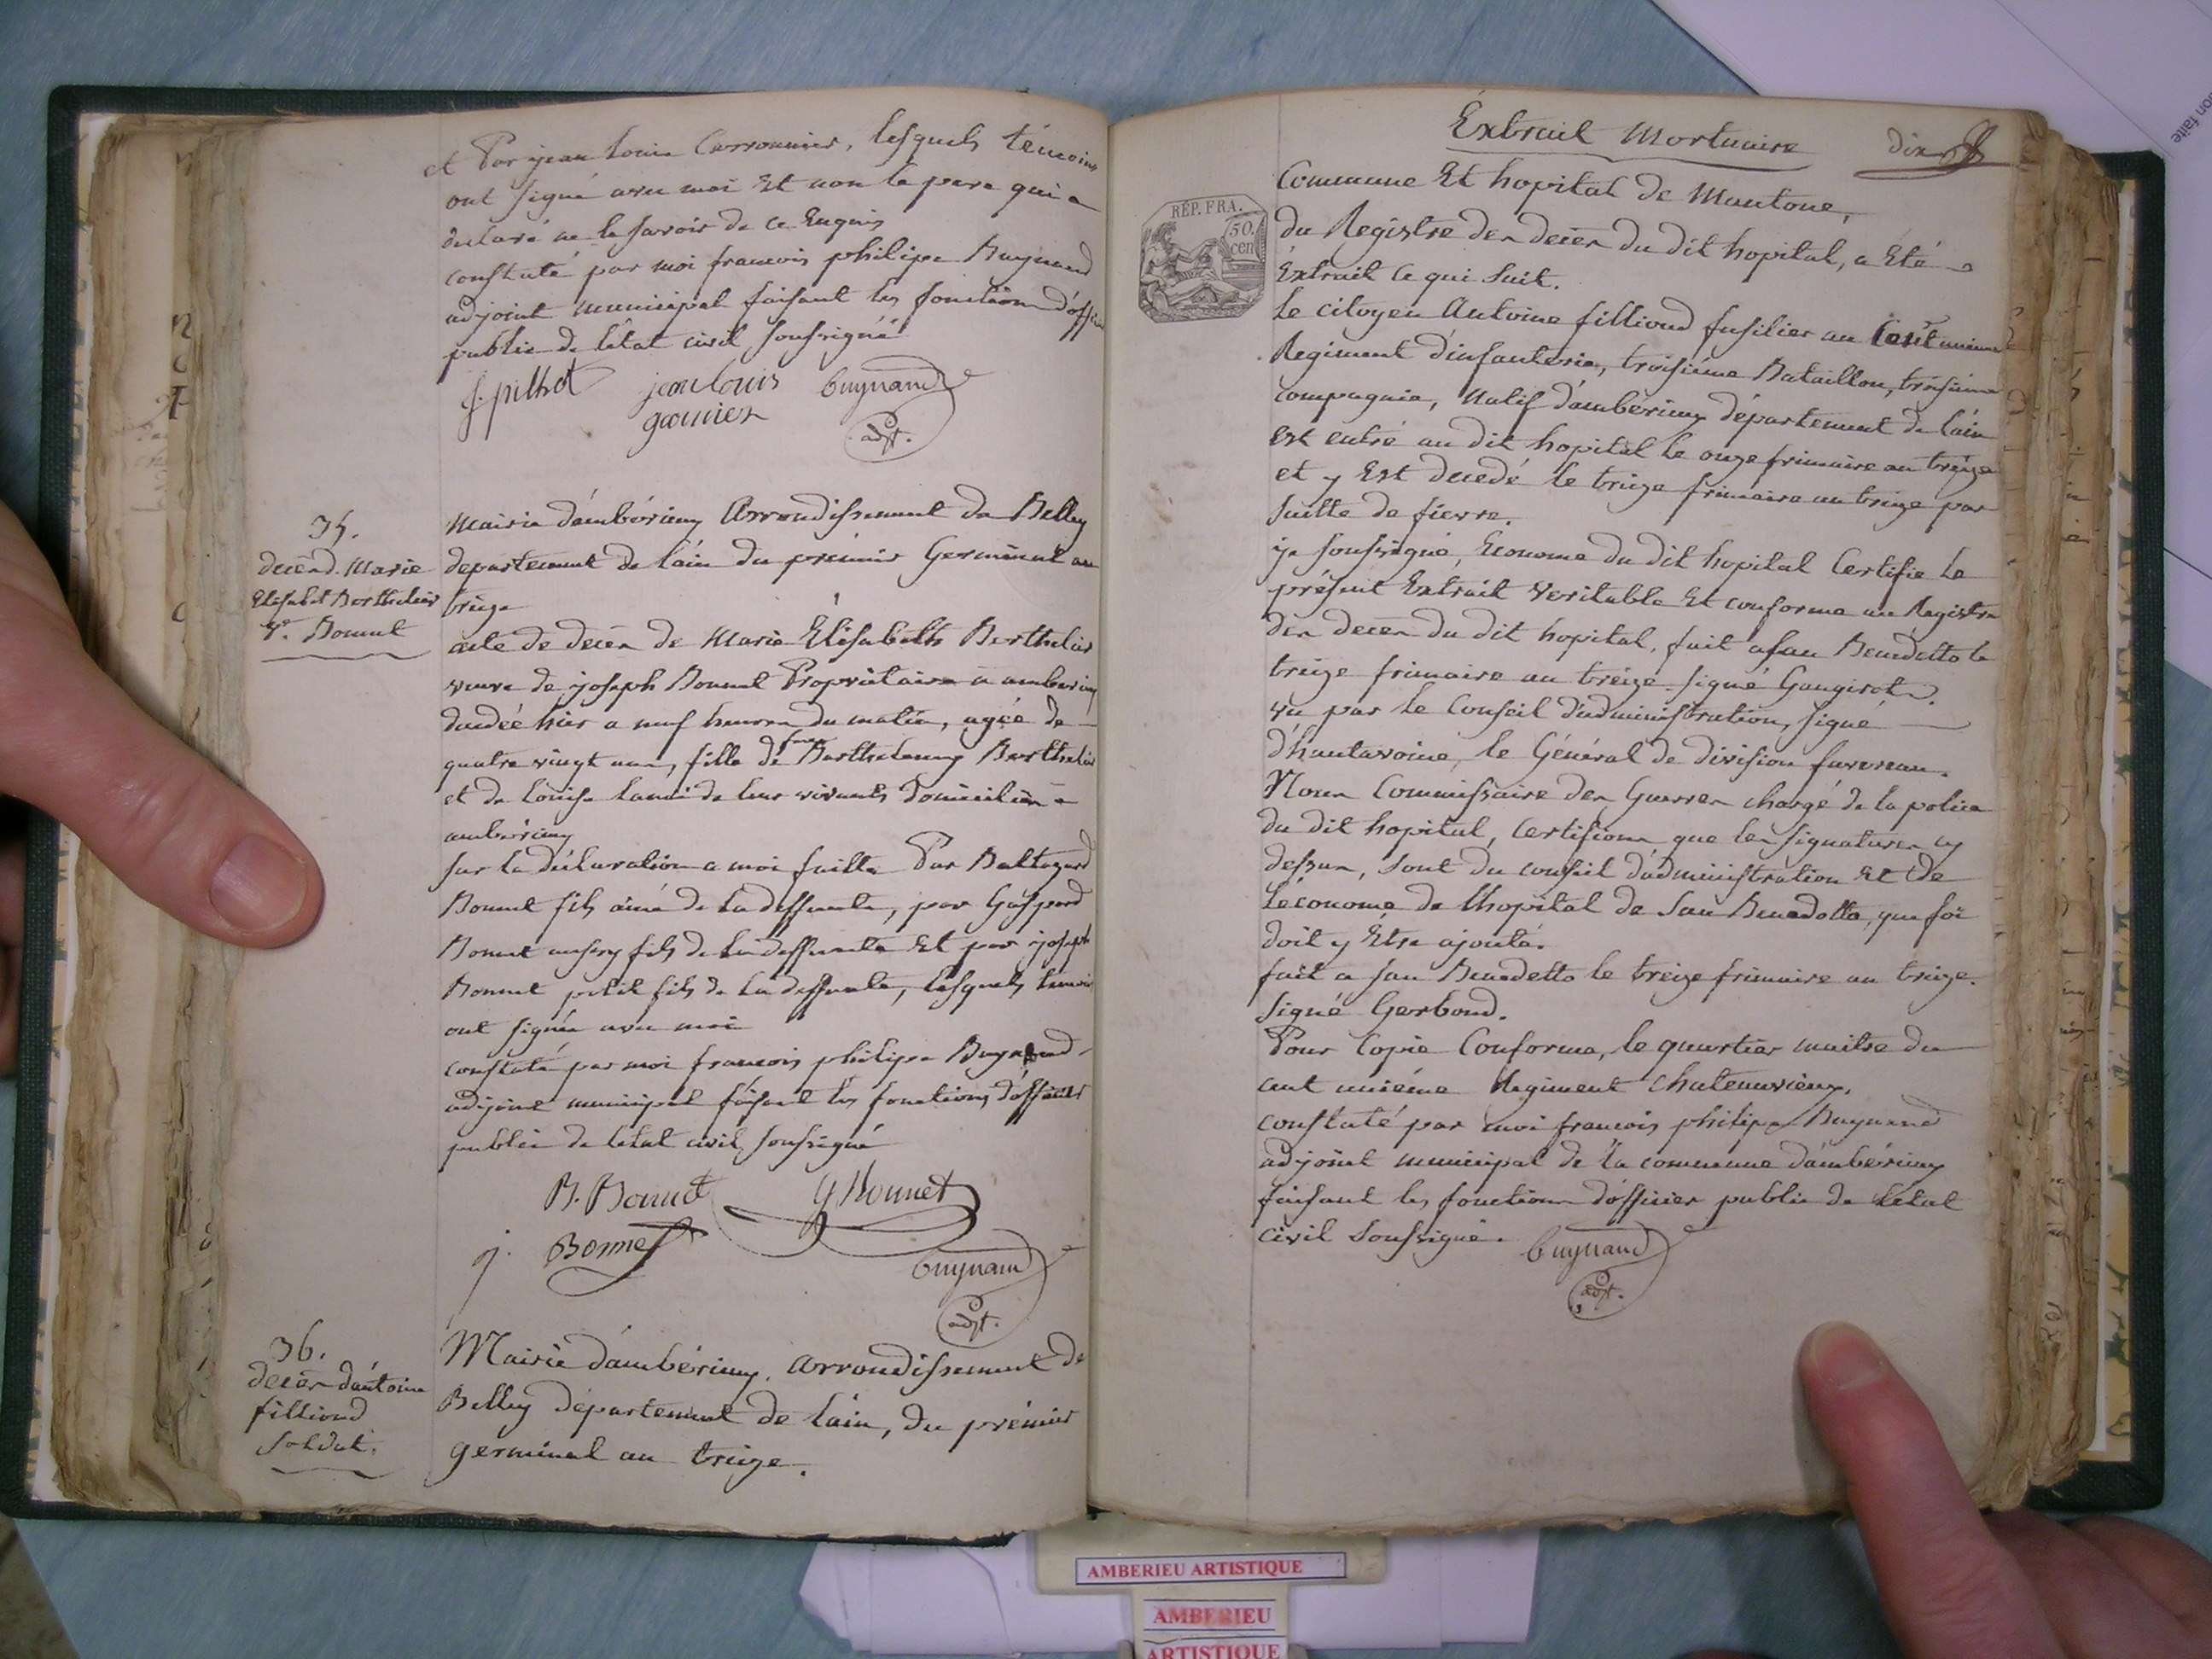 et Par jean Louis Carronnier, lesquels témoins
ont signé avec moi Et non le pere qui a
declaré ne le savoir de ce Enquis
constaté par moi francois philipe Buynand
adjoint municipal faisant les fonctions d'officier
public de l'état civil soussigné
j. pilhot jean louis buynand
garnier adjt.
35.
décès d. Marie
Elisabet Berthelier
ve. Bonnet
Mairie d'ambérieux Arrondissement de Belley
departement de l'ain du prémier Germinal an
treize
acte de decès de Marie Élisabeth Berthelier
veuve de joseph Bonnet Propriétaire a amberieux
decédée hier a neuf heures du matin, agée de
quatre vingt ans, fille de feux Barthelemy Berthelier
et de Louise Lamé de leur vivants domiciliés a
ambérieux
sur la déclaration a moi faitte Par Baltazard
Bonnet fils ainé de la deffunte, par Gaspard
Bonnet aussy fils de la deffunte Et par joseph
Bonnet petit fils de la deffunte, lesquels temoins
ont signés avec moi
constaté par moi francois philipe Buynand
adjoint municipal faisant les fonctions d'officier
public de letat civil soussigné
B. Bonnet G Bonnet
j. Bonnet
buynand
adjt.
36.
decès d'antoine
filliond
soldat.
Mairie d'ambérieux, arrondissement de
Belley département de l'ain, du prémier
germinal an treize.
Extrait Mortuaire dix
RÉP. FRA.
50.
cen
Commune Et hopital de Mantoue,
du Registre des decès du dit hopital, a Eté
Extrait ce qui suit.
le citoyen Antoine filliond fusilier au Cent unieme
Regiment d'infanterie, troisième Bataillon, troisième
compagnie, Natif d'ambérieux département de l'ain
Est entré au dit hopital le onze frimaire an treize
et y Est decedé le treize frimaire an treize par
suitte de fievre.
je soussigné, Econome du dit hopital Certifie le
présent Extrait Veritable Et conforme au Registre
des decès du dit hopital, fait a san Benedetto le
treize frimaire an treize. signé Gaugirot.
vu par le Conseil d'administration, signé
d'hautavoine, le Général de division favereau.
Nous Commissaire des Guerres chargé de la police
du dit hopital, certifions que les signatures cy
dessus, sont du conseil d'administration Et de
l'économe de l'hopital de San Benedotto, que foi
doit y Etre ajouté.
fait a san Benedetto le treize frimaire an treize.
signé Gerboud.
Pour Copie Conforme, le quartier maitre du
cent unième Regiment chatenuvieux.
constaté par moi francois philipe Buynand
adjoint municipal de la commune d'ambérieux
faisant les fonctions d'officier public de letat
civil soussigné. buynand
adjt.
AMBERIEU ARTISTIQUE
AMBERIEU
ARTISTIQUE
ion faite